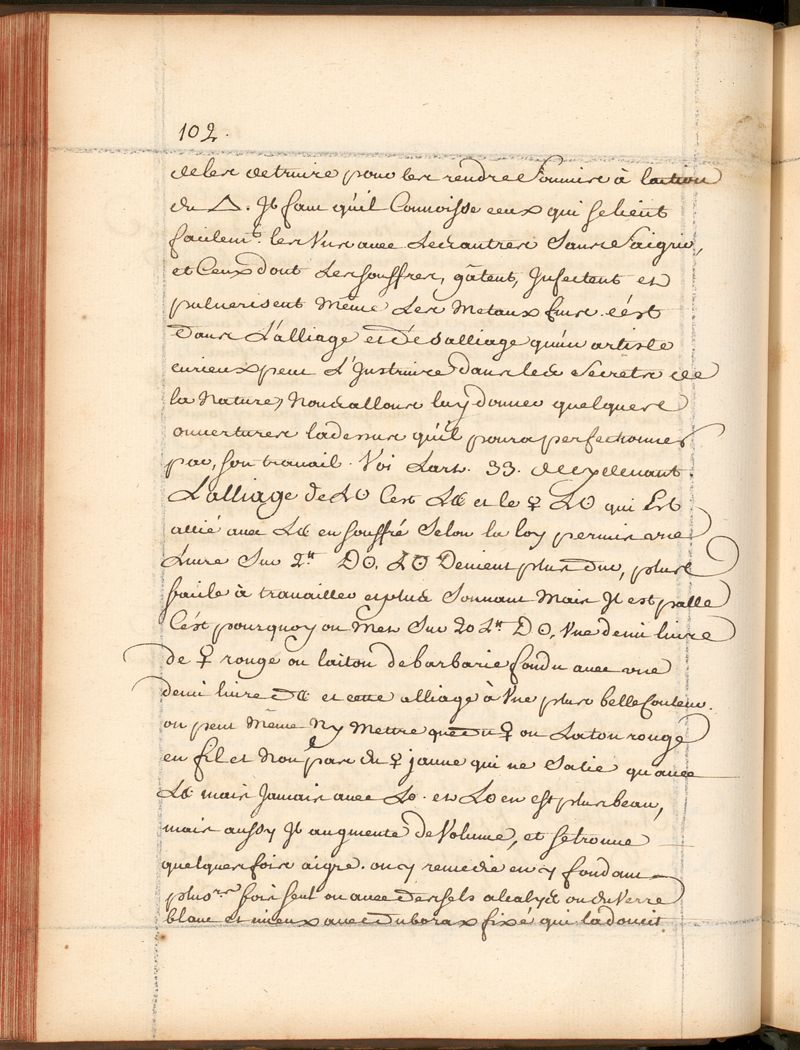 102.
de les detruire pour les rendre Soumise à laction
du △. Jl faut qu'il Connoisse ceux qui se lient
facilemt. les Uns avec Les autres Sans S'aigrir,
et Ceux dont Les souffres, gâtent, Jnfectent et
pulverisent Même Les Metaux fins. c'ést
Dans L'alliage et Désalliage qu'un artiste
curieux peut S'Jnstruire dans les Secrets de
la Nature, Nous allons luy donner quelques
ouvertures ladessus qu'il poura perfectionner
par, son travail. Voi Lart. 33. decydevant.
L'alliage de et le ♀ qui Est
allié avec en souffré Selon la loy permise une
Livre Sur Devient plus Dur, plus
facile à travailler et plus Sonnant Mais Jl est palle
C'ést pourquoy on Met Sur 20 Une demi livre
de ♀ rouge ou laiton de barbarie fondu avec une
demi livre et cette alliage à Une plus belle Couleur.
on peut Même Ny Mettre que Du ♀ ou Laton rouge
en fil et Non pas du ♀ jaune qui ne Salie qu'avec
mais Jamais avec en est plus beau,
mais aussy Jl augmente de Volume, et se trouve
quelques fois aigre. on y remedie en y fondant
plusrs. fois seul ou avec Des sels alcalys ou du Verre
blanc et mieux avec Du borax fixé qui ladoucit